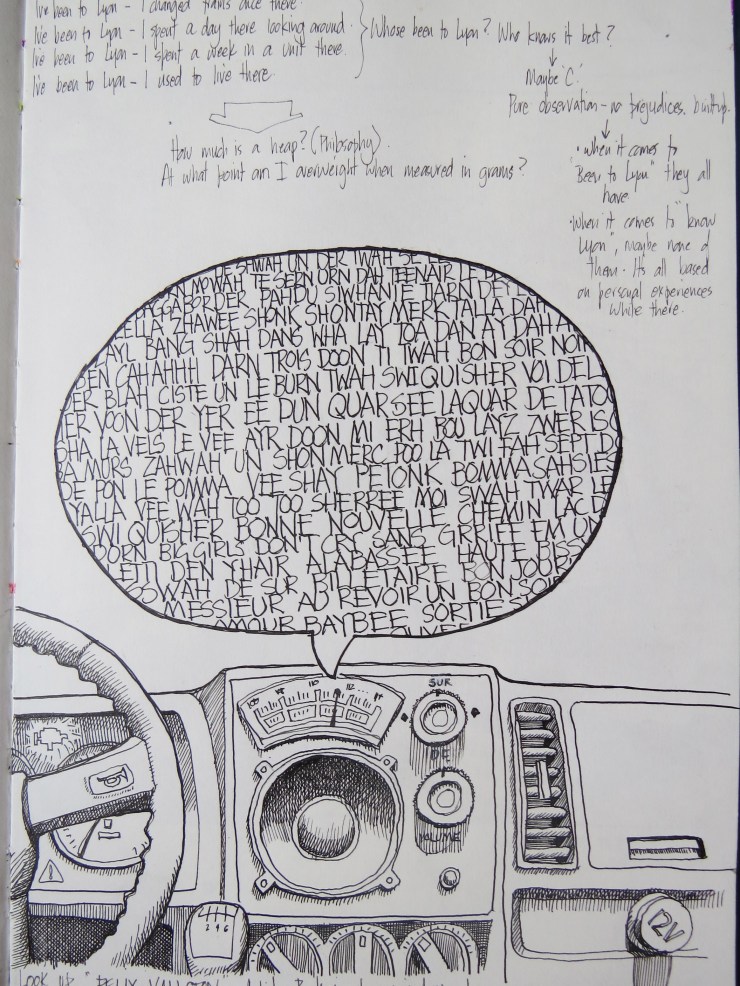 I've been to Lyon - I changed trains once there.
I've been to Lyon - I spent a day there looking around.
I've been to Lyon - I spent a week in a unit there.
I've been to Lyon - I used to live there.
Whose been to Lyon? Who knows it best?
Maybe 'C.'
Pure observation - no prejudices. built up.
• When it comes to
"Been to Lyon" they all
have
• When it comes to "know
Lyon", maybe none of
them. Its all based
on personal experiences
while there.
How much is a heap? (Philosophy).
At what point am I overweight when measured in grams?
SHWAH UN DER TWAH
MOWAH TE SEEN ORN DAH TEENAIR LE
DAGGABORDER PAHDU SIWHANIE TIARN DEY
ELLA ZHAWEE SHONK SHONTAY MERK TALLA DAH
AYL BANG SHAH DANS WHA LAY TOA DAN AY DAH A
BEN GAHAHHH DARN TROIS DOON TI TWAH BON SOIR NON
ER BLAH CISTE UN LE BURN TWAH SWI QUISHER VOI DEL
ER VOON DER YER EE DUN QUARSEE LAQUAR DE TATO
DHA LA VELS LE VEE AYR DOON MI ERH BOU LAYZ ZWER ISO
BA MURS ZAHWAH UN SHON MERC POO LA TWI TAH SEPT D
DE PON LE POMMA VEE SHAY PETONK BOMMASAHSIES
YALLA VEE WAH TOO TOO SHERREE MOI SWAH TWAR LE
SWI QUISHER BONNE NOUVELLE CHEMIN LAC D
DORN BIG GIRLS DON'T CRY SANS GRRIEE EM UN
ETI DEN YHAIR ALABASSEE HAUTE BISS
OSWAH DE SUR BILLETAIRE BONJOUR
MESSIEUR AU REVOIR UN BON SOIR
AMOUR BAYBEE SORTIE
OUVE
108
110
112
SUR
DIE
VLUME
2 4 6
12V
LOOK UP "FELIX VALLOTTON"